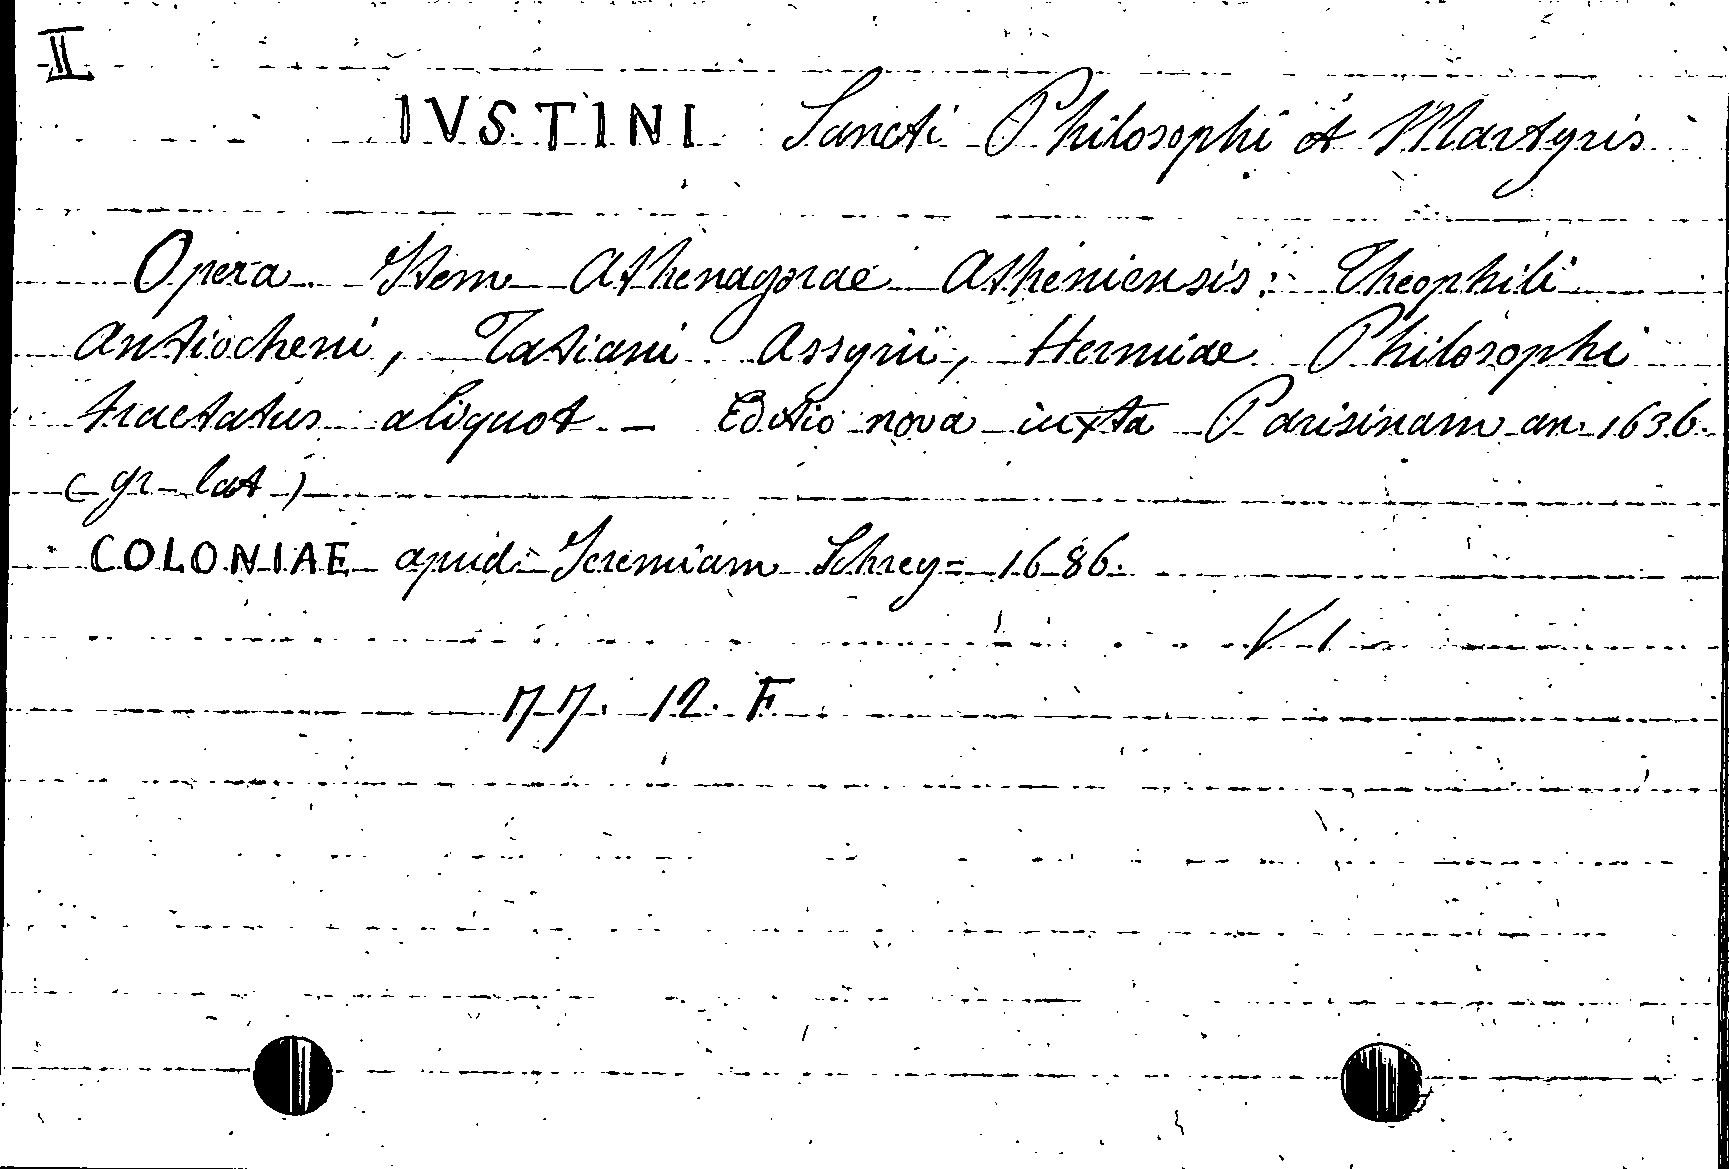 II
IVSTINI Sancti Philosophi et Martyris
Opera. Item Athenagorae Atheniensis: Theophili
Antiocheni, Tatiani Assyrii, Hermiae Philosophi
tractatus aliquot - Editio nova iuxta Parisinam an. 1636.
(gr-lat)
COLONIAE apud Ieremiam Schrey= 1686.
V 1
77. 12. F